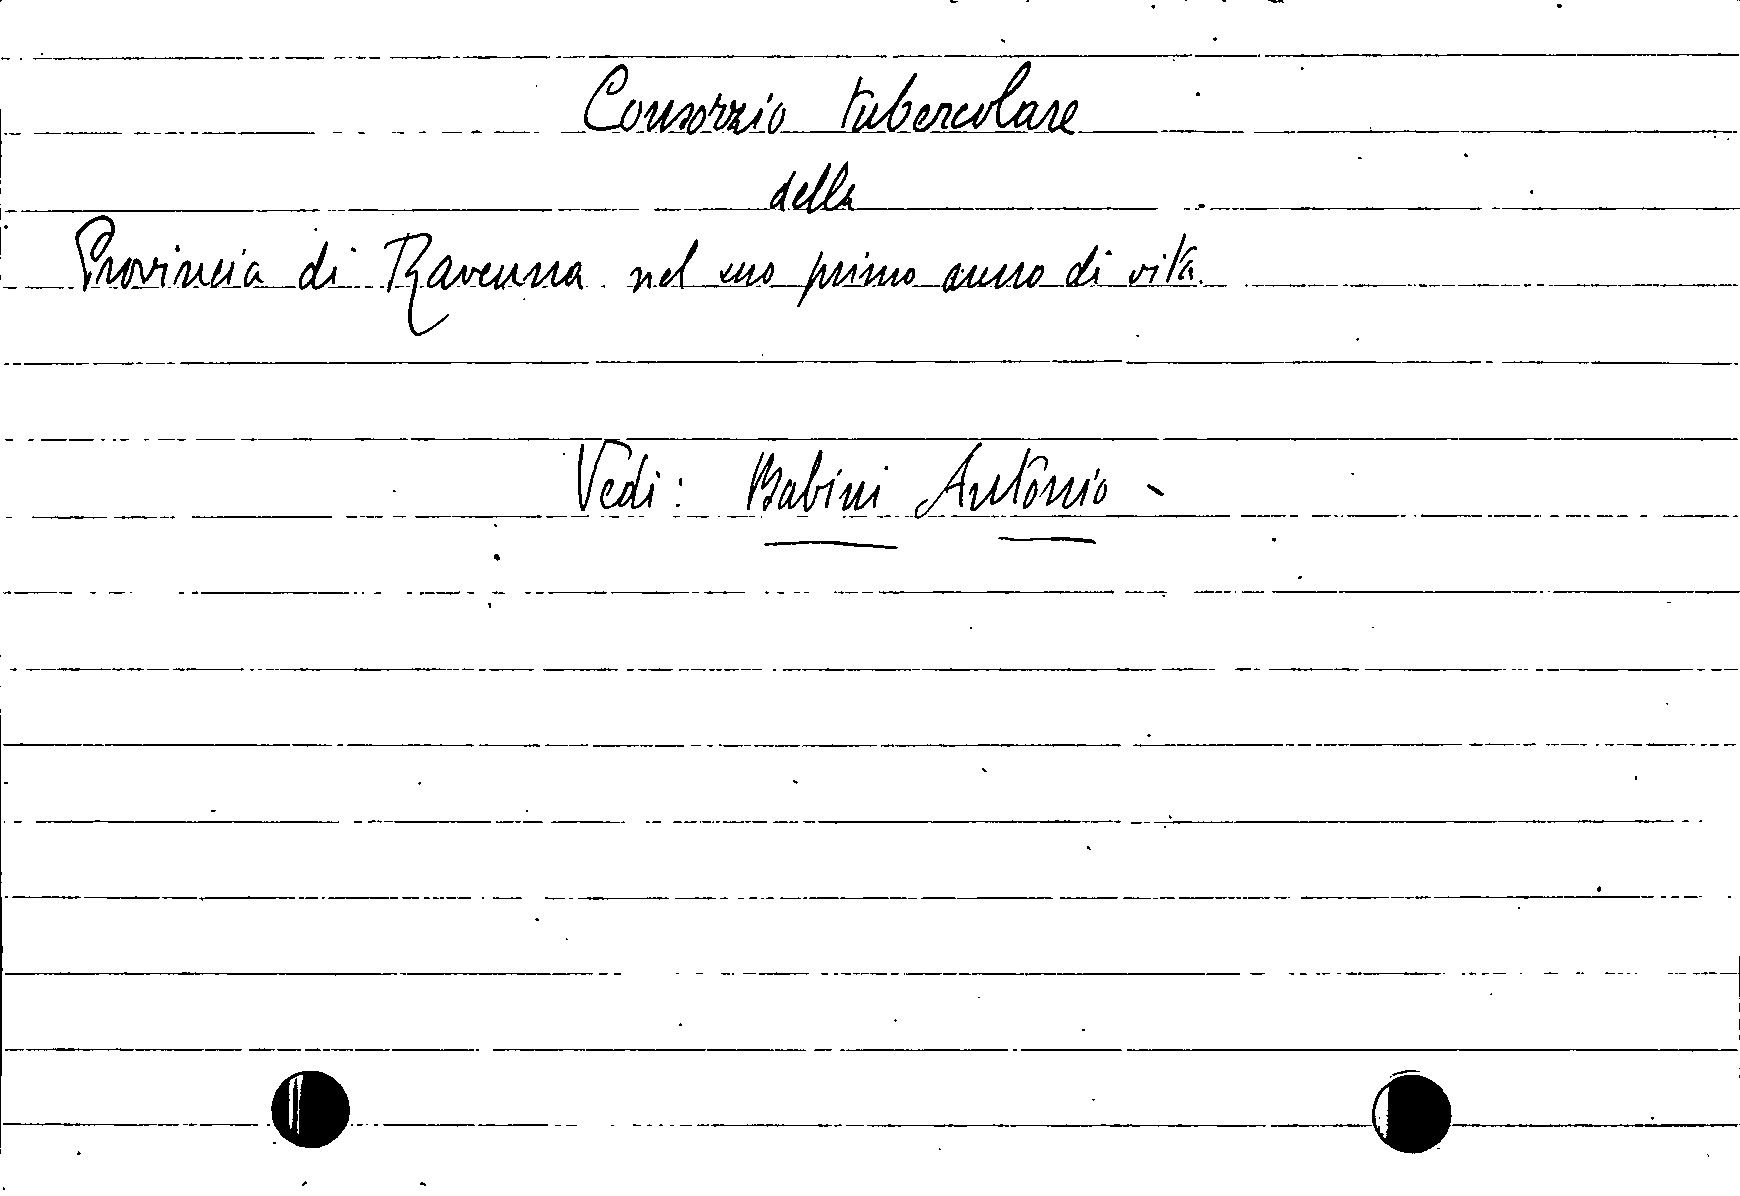 Consorzio tubercolare
della
Provincia di Ravenna nel suo primo anno di vita.
Vedi: Babini Antonio -